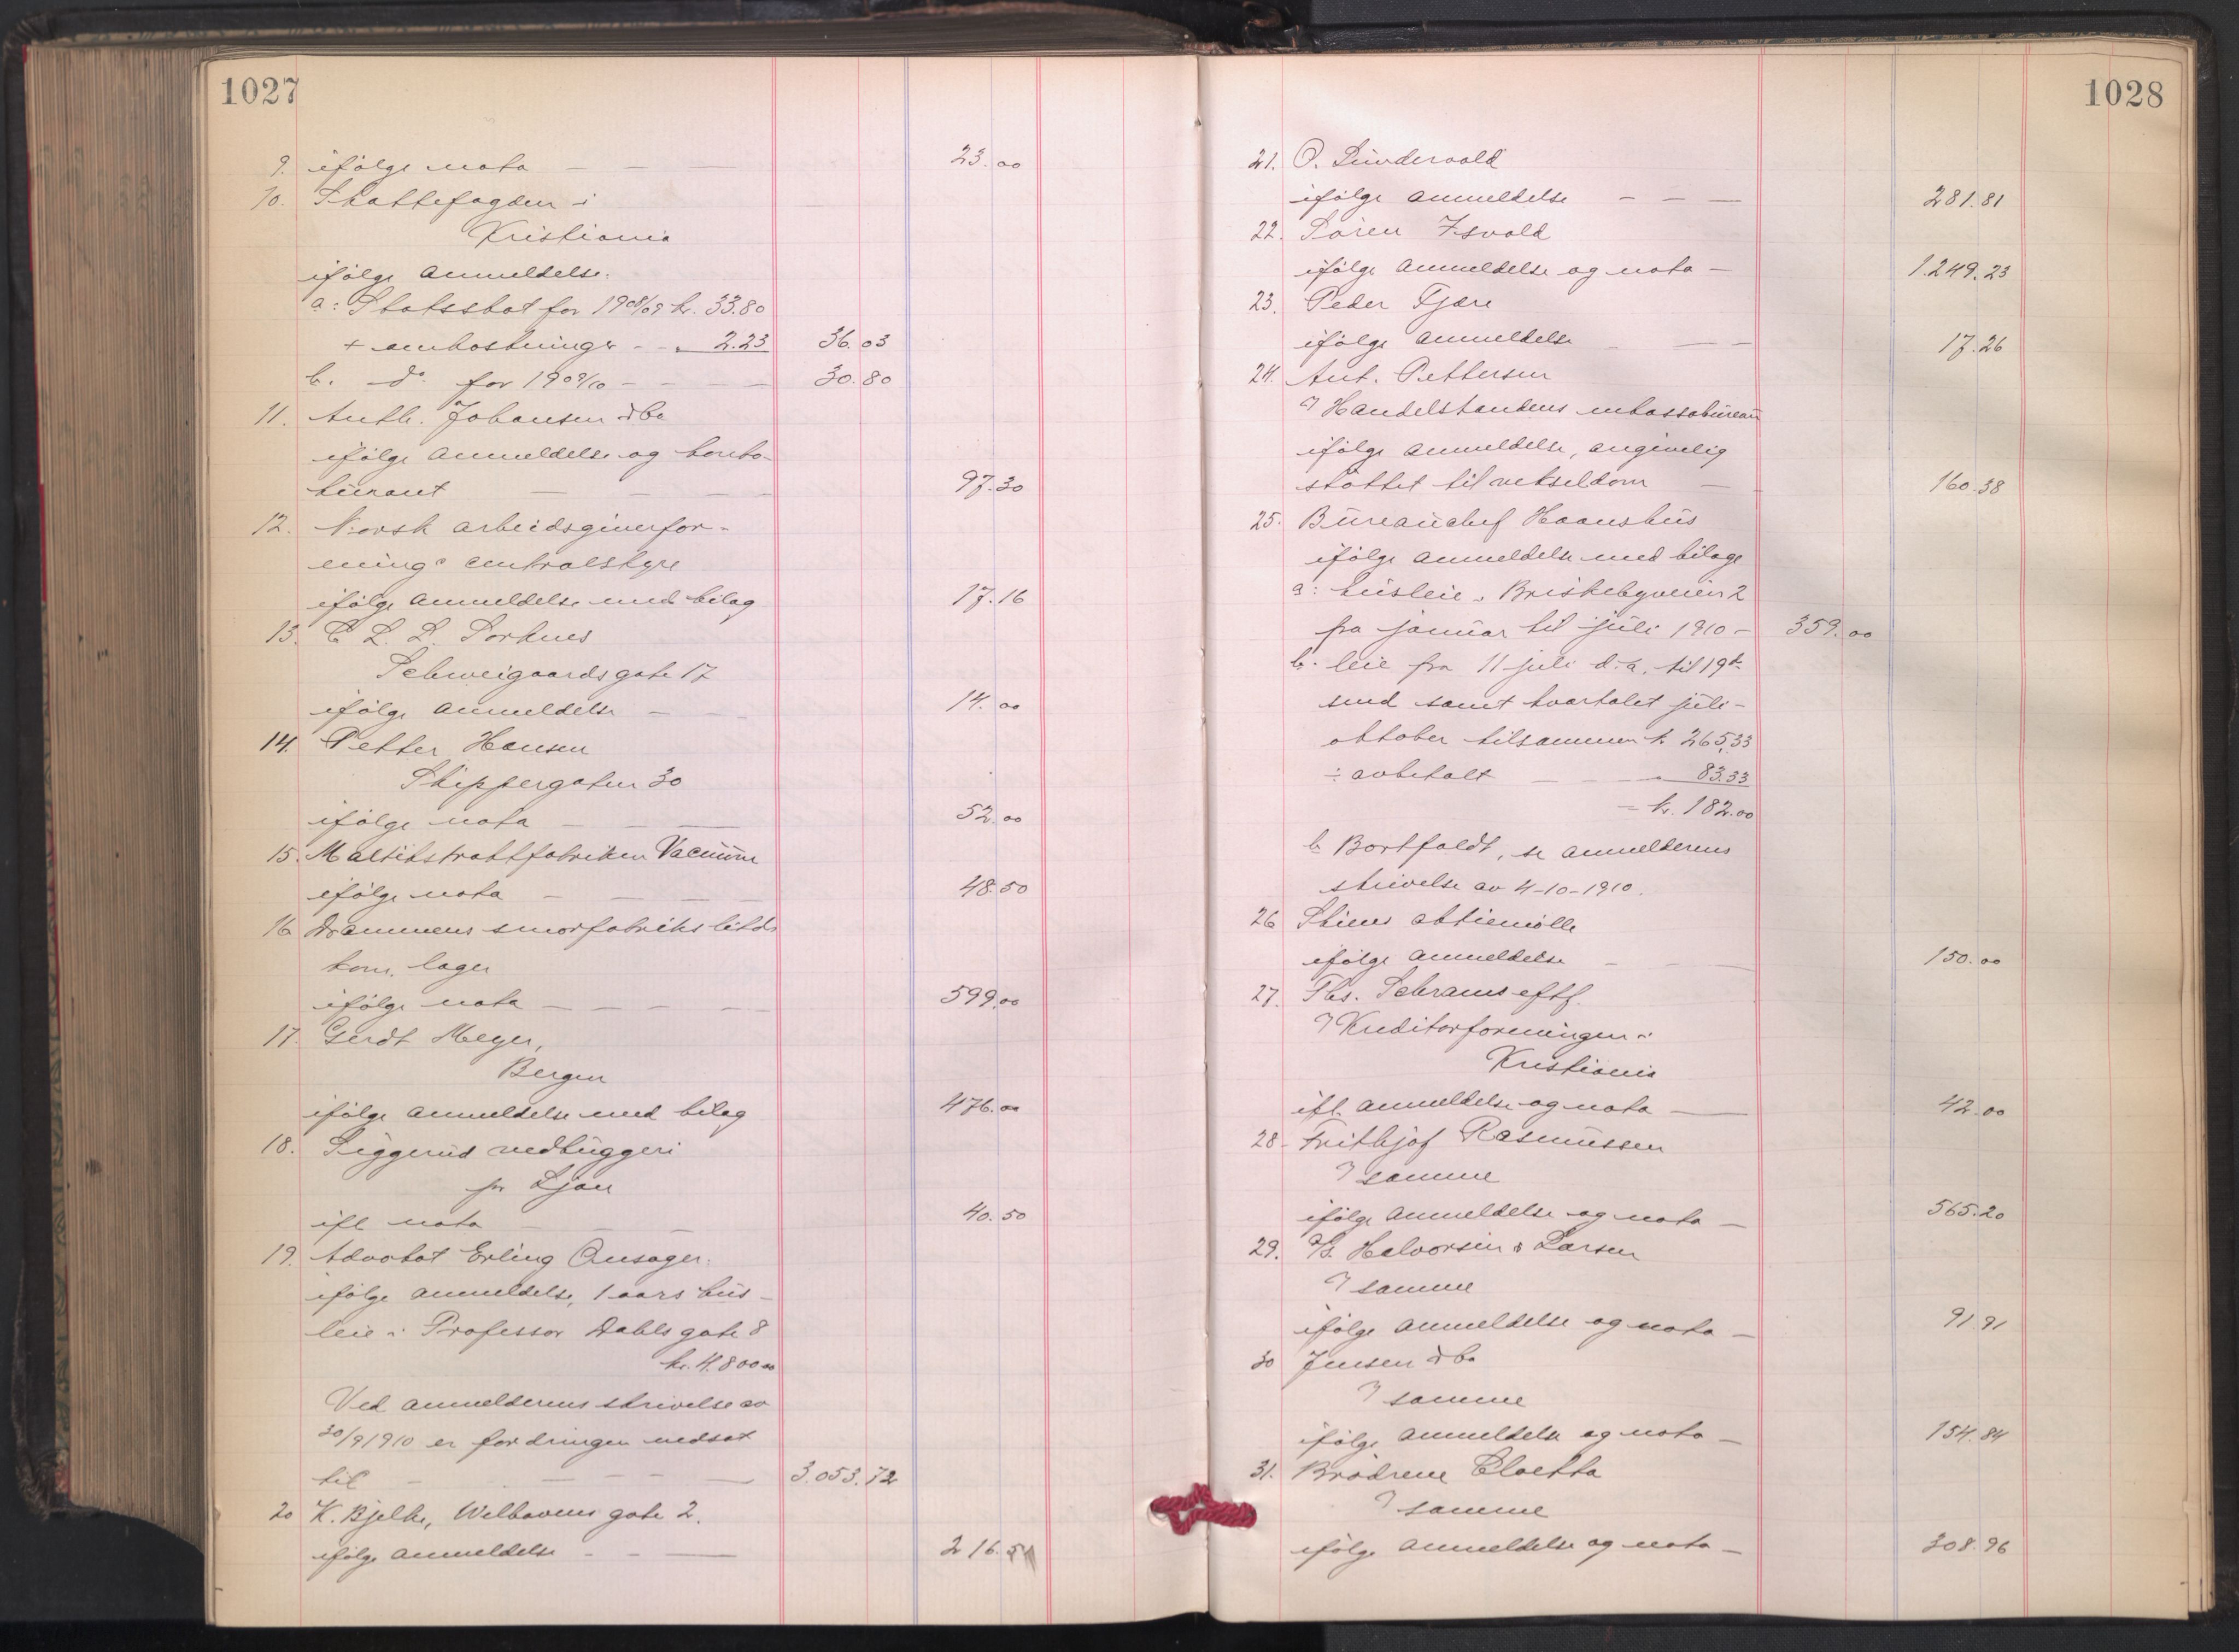 1027
9. ifølge nota — — — 23.00
10. Skattefogden i
Kristiania
ifølge anmeldelse.
a: Statsskat for 1908/09 kr. 33.80
+ omkostninger - - " 2.23 36.03
b. do. for 1909/10 - - - 30.80
11. Anth. Johansen & Co
ifølge anmeldelse og konto-
kurant — — — 97.30
12. Norsk arbeidsgiverfor-
enings centralstyre
ifølge anmeldelse med bilag 17.16
13. C. L. L. Sorknes
Schweigaardsgate 17
ifølge anmeldelse — — 14.00
14. Petter Hansen
Skippergaten 30
ifølge nota — — — 52.00
15. Maltekstraktfabriken Vacuum
ifølge nota — — — 48.50
16 Drammens smørfabriks
kom. lager
ifølge nota — — — 599.00
17. Gerdt Meyer,
Bergen
ifølge anmeldelse med bilag 476.00
18. Siggerud vedhuggeri
pr Ljan
ifl. nota — — — 40.50
19. Advokat Erling Ansager.
ifølge anmeldelse, 1 aars hus-
leie i Professor Dahls gate 8
kr. 4.800.00
Ved anmelderens skrivelse av
30/9 1910 er fordringen nedsat
til — — — — 3.053.72
20 K. Bjelke, Welhavens gate 2.
ifølge anmeldelse - - — 216.51
1028
21. O. Sundervold
ifølge anmeldelse — — — 281.81
22. Søren Isvold
ifølge anmeldelse og nota — 1.249.23
23. Peder Tjære
ifølge anmeldelse — — 17.26
24. Ant. Pettersen
Handelstandens inkassobureau
ifølge anmeldelse, angivelig
støttet til vekseldom — 160.38
25. Bureauchef Haanshus
ifølge anmeldelse med bilage
a: husleie i Briskebyveien 2
fra januar til juli 1910 - 359.00
b. leie fra 11 juli d.a. til 19de
smd samt kvartalet juli-
oktober tilsammen k. 265.33
÷ avbetalt — — — " 83.33
= kr. 182.00
b Bortfaldt, se anmelderens
skrivelse av 4-10-1910.
26 Skiens aktiemølle
ifølge anmeldelse — — 150.00
27. Ths. Schrams eftf.
Kreditorforeningen i
Kristiania
ifl. anmeldelse og nota — 42.00
28 - Frithjof Rasmussen
samme
ifølge anmeldelse og nota — 565.20
29. A/S. Halvorsen & Larsen
samme
ifølge anmeldelse og nota — 91.91
30 Jensen & Co
samme
ifølge anmeldelse og nota — 154.84
31. Brødrene Cloetta
samme
ifølge anmeldelse og nota — 308.96